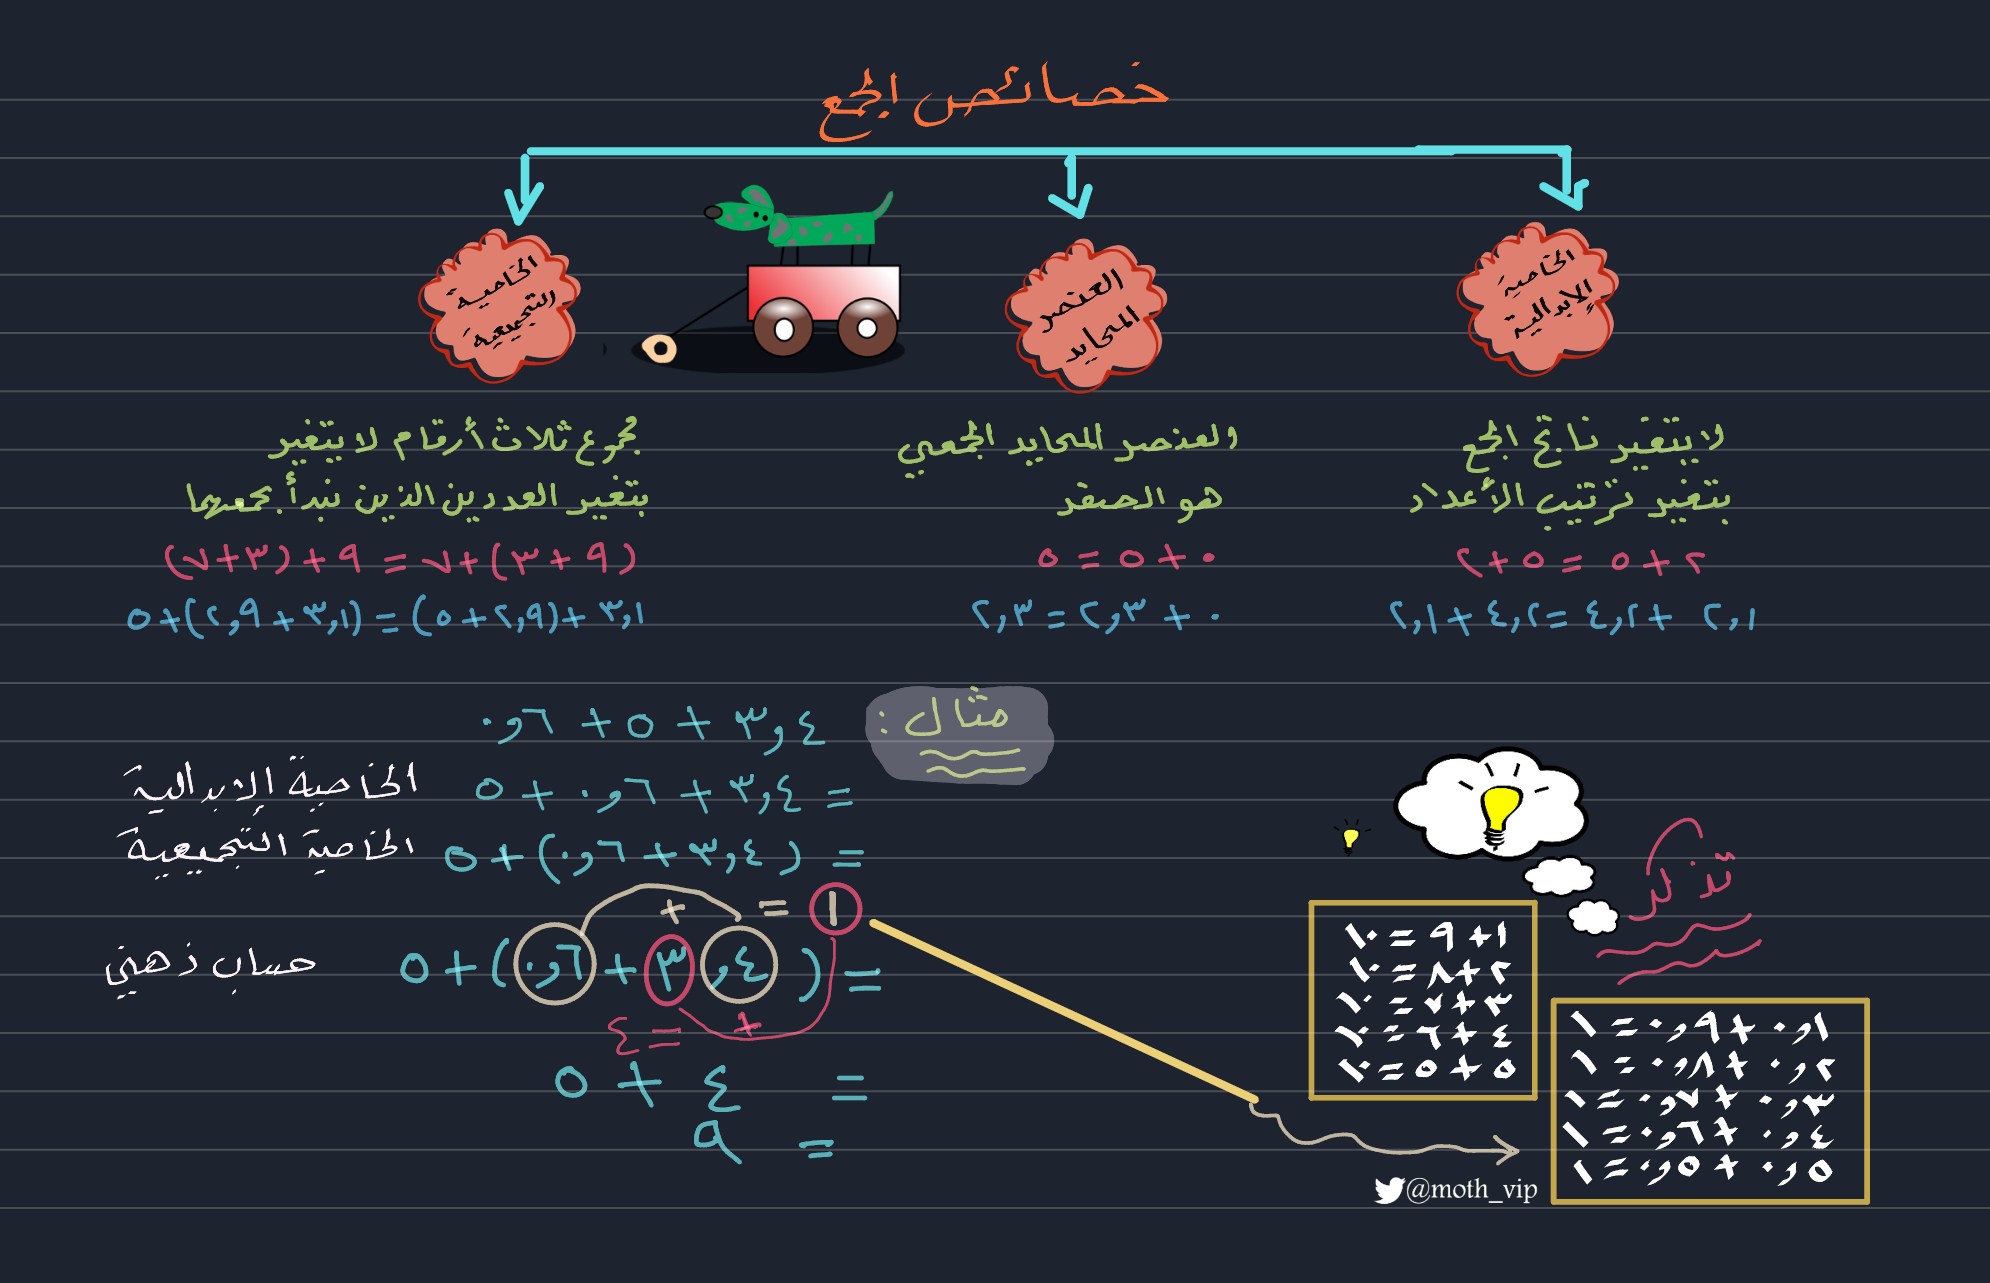 خصائص الجمع
الخاصية
الإبدالية
العنصر
المحايد
الخاصية
التجميعية
لا يتغير ناتج الجمع
بتغير ترتيب الأعداد
٢ + ٥ = ٥ + ٢
٢,١ + ٤,٢ = ٤,٢ + ٢,١
العنصر المحايد الجمعي
هو الصفر
٠ + ٥ = ٥
٠ + ٢,٣ = ٢,٣
مجموع ثلاث أرقام لا يتغير
بتغير العددين الذين نبدأ بجمعهما
(٩ + ٣) + ٧ = ٩ + (٣ + ٧)
٣,١ + (٢,٩ + ٥) = (٣,١ + ٢,٩) + ٥
مثال :
٣,٤ + ٥ + ٠,٦
= ٣,٤ + ٠,٦ + ٥ الخاصية الإبدالية
= (٣,٤ + ٠,٦) + ٥ الخاصية التجميعية
١ = +
= (٣,٤ + ٠,٦) + ٥ حساب ذهني
+ = ٤
= ٤ + ٥
= ٩
تذكر
١ + ٩ = ١٠
٢ + ٨ = ١٠
٣ + ٧ = ١٠
٤ + ٦ = ١٠
٥ + ٥ = ١٠
٠,١ + ٠,٩ = ١
٠,٢ + ٠,٨ = ١
٠,٣ + ٠,٧ = ١
٠,٤ + ٠,٦ = ١
٠,٥ + ٠,٥ = ١
@moth_vip